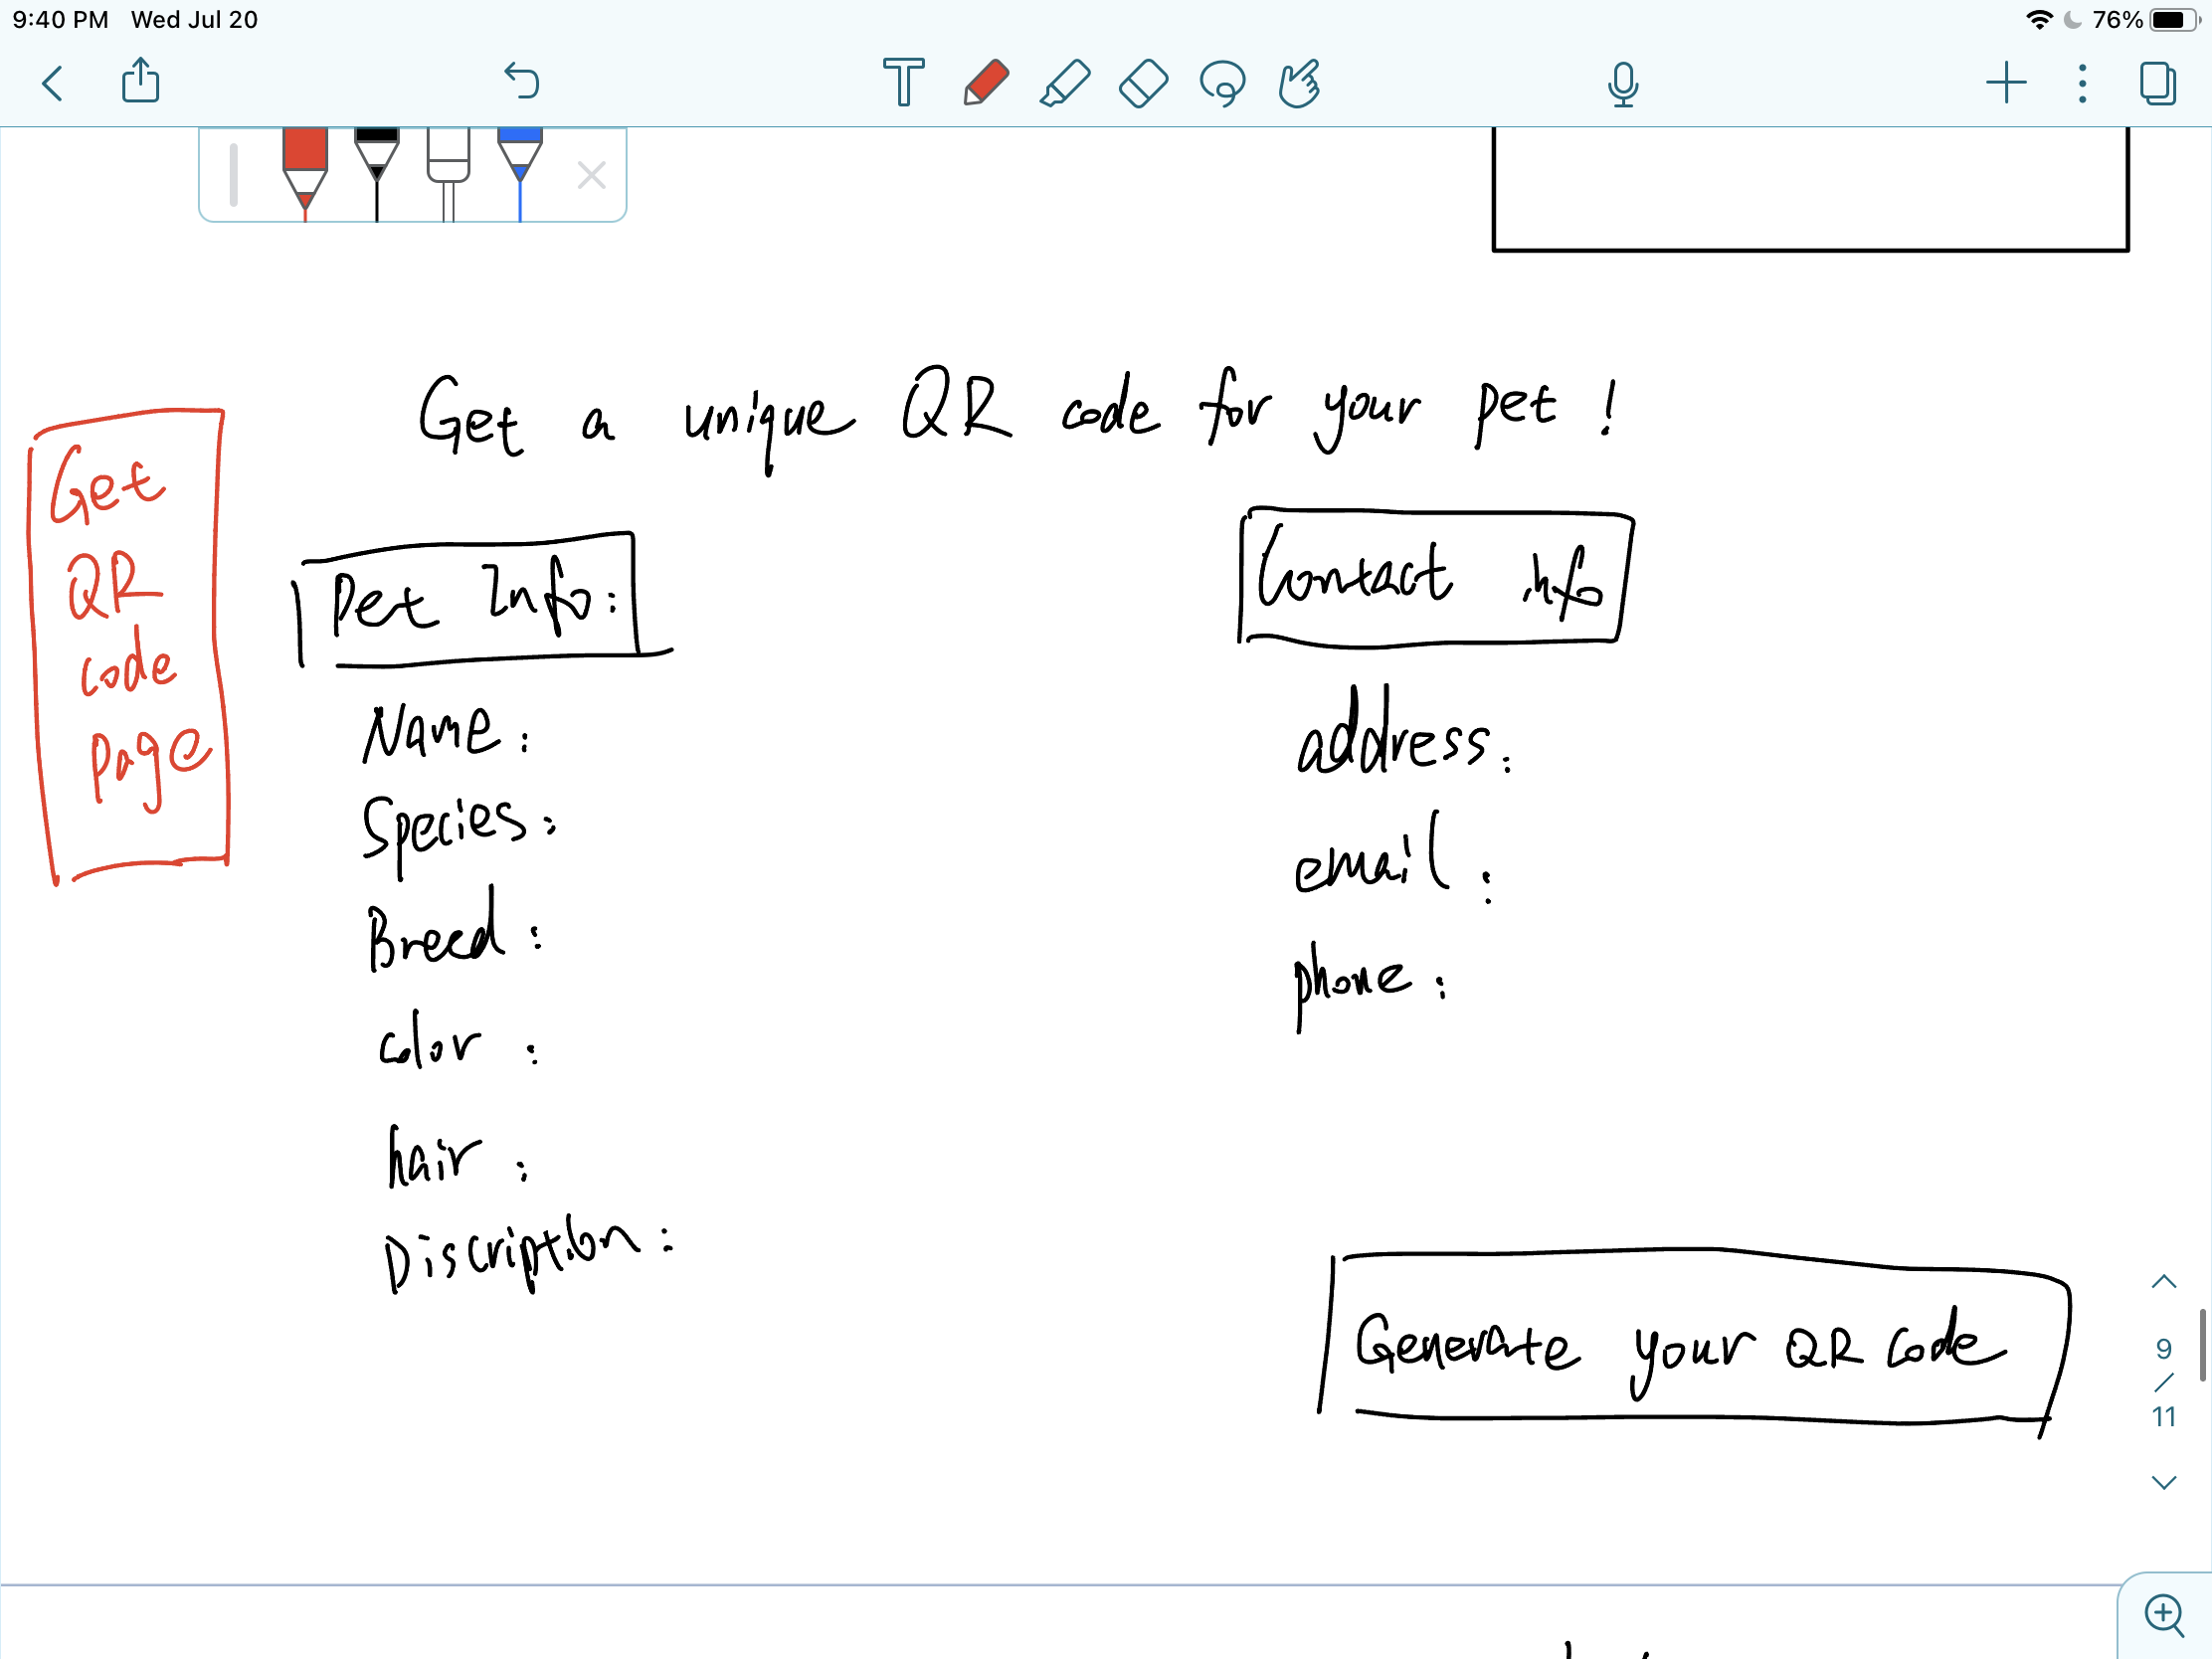 9:40 PM Wed Jul 20
76%
Get a unique QR code for your pet !
Get
QR
code
page
Pet Info:
Name:
Species:
Breed:
color :
hair :
Discription:
Contact info
address:
email:
phone:
Generate your QR code
9
/
11